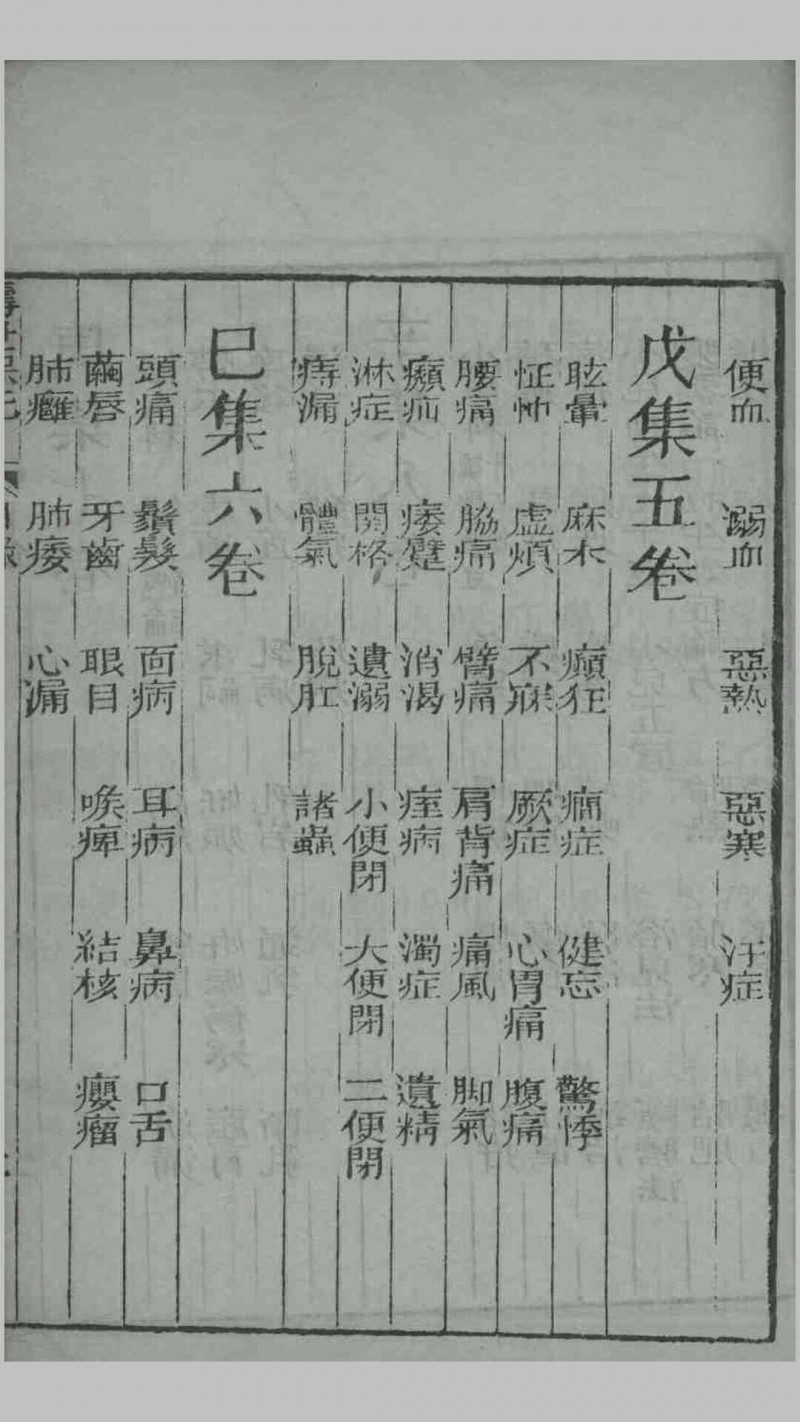 便血 溺血 惡熱 惡寒 汗症
戊集五卷
眩暈 麻木 癲狂 癇症 健忘 驚悸
怔忡 虛煩 不寐 厥症 心胃痛 腹痛
腰痛 脇痛 臂痛 肩背痛 痛風 脚氣
癩疝 痿躄 消渴 痓病 濁症 遺精
淋症 関格 遺溺 小便閉 大便閉 二便閉
痔漏 體氣 脫肛 諸蟲
巳集六卷
頭痛 鬚髮 面病 耳病 鼻病 口舌
繭唇 牙齒 眼目 喉痺 結核 癭瘤
肺癰 肺痿 心漏